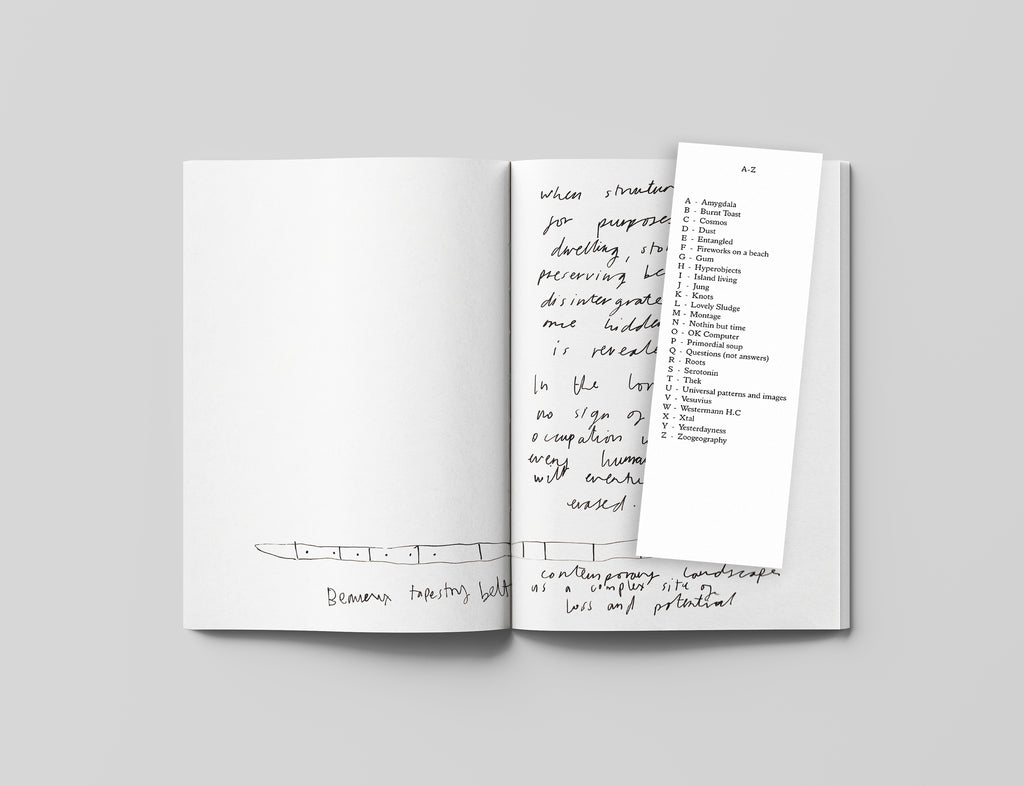 when structur
for purposes
dwelling, sto
preserving be
disintergrate
once hidden
is reveale
In the lon
no sign of
occupation
every huma
will eventu
erased.
tapestry belt
contemporary landscapes
as a complex site of
loss and potential
A-Z
A - Amygdala
B - Burnt Toast
C - Cosmos
D - Dust
E - Entangled
F - Fireworks on a beach
G - Gum
H - Hyperobjects
I - Island living
J - Jung
K - Knots
L - Lovely Sludge
M - Montage
N - Nothin but time
O - OK Computer
P - Primordial soup
Q - Questions (not answers)
R - Roots
S - Serotonin
T - Thek
U - Universal patterns and images
V - Vesuvius
W - Westermann H.C
X - Xtal
Y - Yesterdayness
Z - Zoogeography